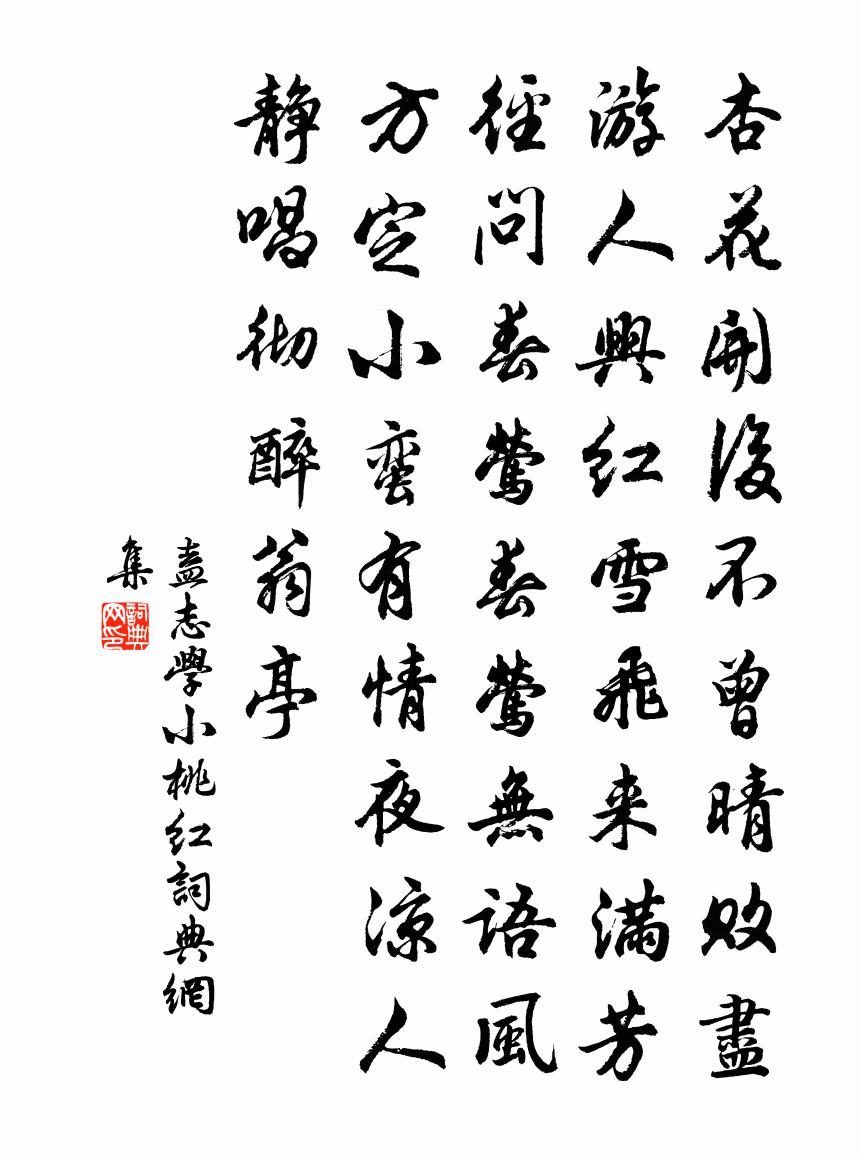 杏花開後不曾晴敗盡
游人興红雪飛来滿芳
徑問春鶯春鶯無語風
方定小蛮有情夜凉人
静唱彻醉翁亭
盍志學小桃红詞典網
集
詞典
网印